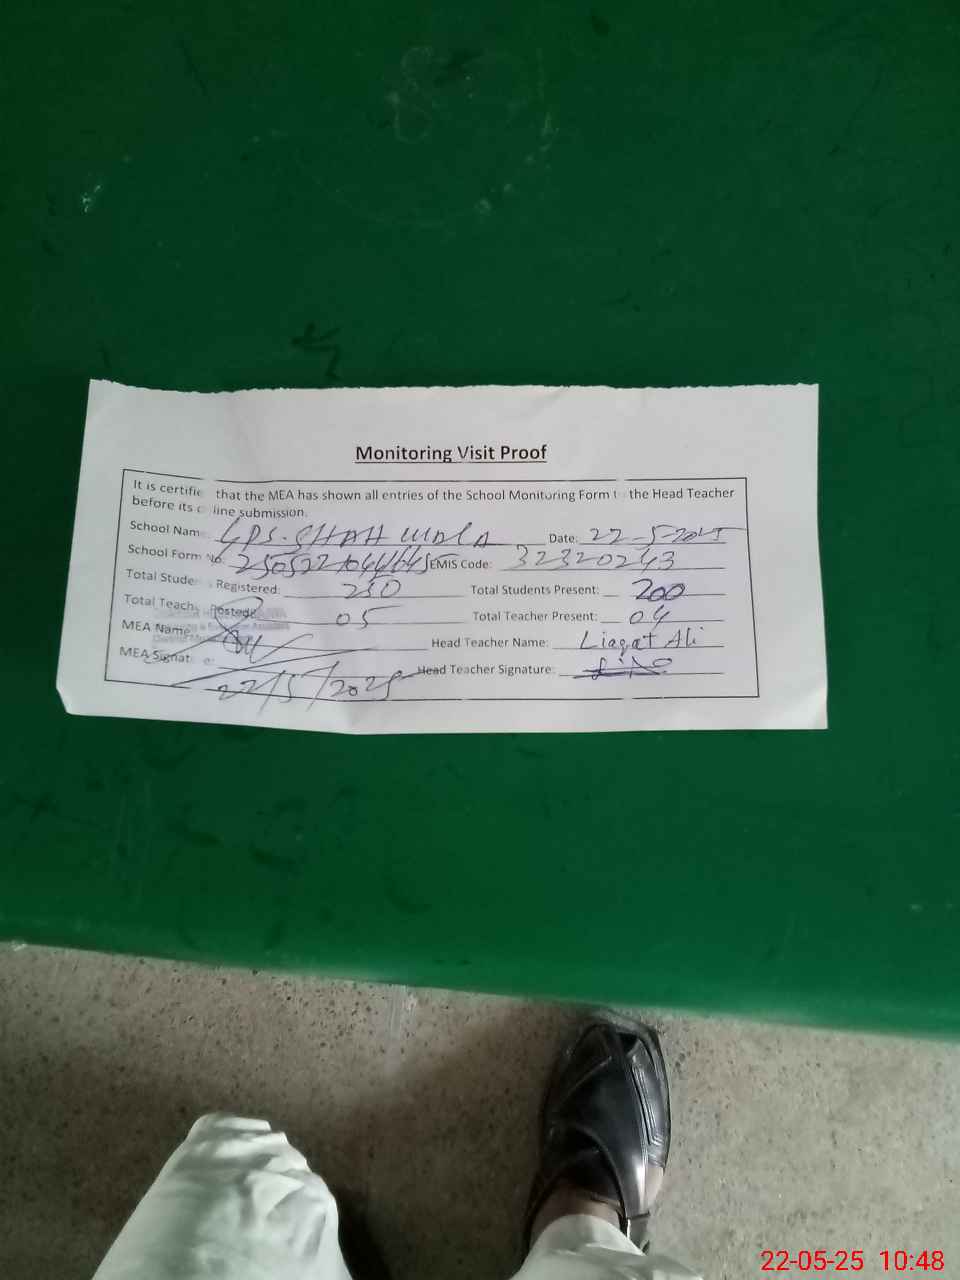 Monitoring Visit Proof
It is certifie that the MEA has shown all entries of the School Monitoring Form t the Head Teacher
before its line submission.
School Nam GPS. SHAH WALA Date: 22-5-2025
School Form No. EMIS Code: 32320243
Total Stude Registered: 250 Total Students Present: 200
Total Teach Posted: 05 Total Teacher Present: 04
MEA Name Head Teacher Name: Liaqat Ali
MEA Signat e: Head Teacher Signature:
22/5/2025
22-05-25 10:48